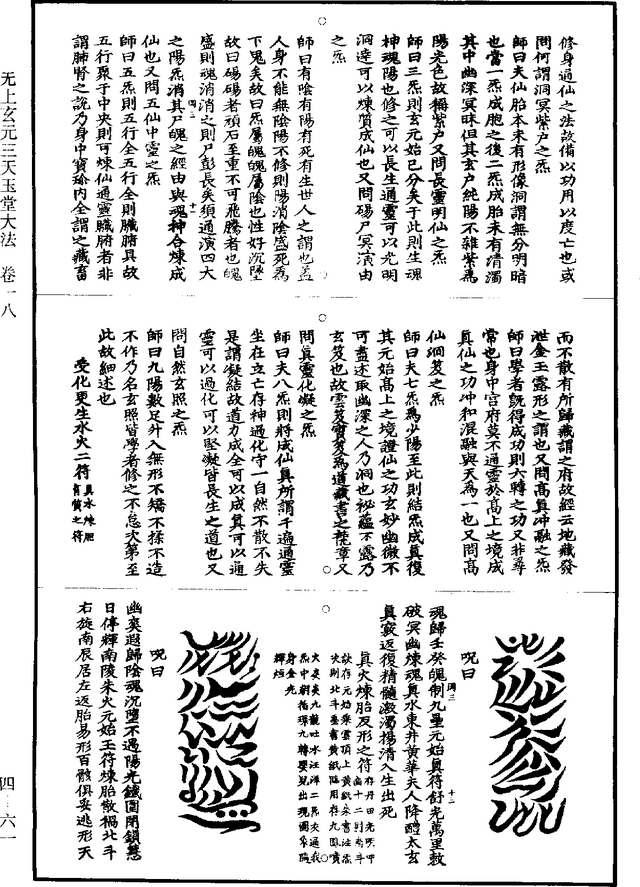 无上玄元三天玉堂大法　卷一八
四—六一
修身過仙之法故備以功用以度亡也或
問何謂洞冥紫户之炁
師曰夫仙胎本未有形像洞謂無分明暗
也當一炁成胞之後二炁成胎未有清濁
其中幽深冥昧但其玄户純陽不雜紫爲
陽光色故稱紫户又問長靈明仙之炁
師曰三炁則玄元始已分矣于此則生魂
神魂陽也修之可以長生通靈可以光明
洞達可以煉質成仙也又問碭尸冥演由
之炁
師曰有陰有陽有死有生世人之謂也蓋
人身不能無陰陽不修則陽消陰盛死爲
下鬼矣故曰炁屬魄魄屬陰也性好沉墜
故曰碭碭者頑石至重不可飛騰者也魄
盛則魂消消之則尸彭長矣須通演四大
之陽炁消其尸魄之經由與魂神合煉成
仙也又問五仙中靈之炁
師曰五炁則五行全五行全則臟腑具故
五行聚于中央則可煉仙通靈臟腑者非
謂肺腎之説乃身中寶瑜内全謂之藏畜
而不散有所歸藏謂之府故經云地藏發
泄金玉露形之謂也又問髙真冲融之炁
師曰學者旣得成功則六轉之功又非尋
常也身中宫府莫不通靈於髙上之境成
真仙之功冲和混融與天爲一也又問髙
仙洞笈之炁
師曰夫七炁爲少陽至此則結炁成真復
其元始髙上之境證仙之功玄妙幽微不
可盡述取幽深之人乃洞也祕藴不露乃
玄笈也故雲笈寶笈爲道藏書之蓯章又
問真靈化凝之炁
師曰夫八炁則將成仙真所謂千遍通靈
坐在立亡存神過化守一自然不散不失
是謂凝結故道力成全可以成真可以通
靈可以過化可以堅凝皆長生之道也又
問自然玄照之炁
師曰九陽數足升入無形不矯不揉不造
不作乃名玄照皆學者修之不怠次第至
此故細述也
受化更生水火二符真水煉胞育質之符
呪曰
魂歸壬癸魄制九星元始真符舒光萬里敕
破冥幽煉魂真水東井黄華夫人降醴太玄
真竅返復精髓激濁揚清入生出死
真火煉胎反形之符
呪曰
幽爽遐歸陰魂沉墮不遇陽光鐵圍閉鎖慧
日停輝南陵朱火元始玉符煉胎散禍北斗
右旋南辰居左返胎易形百骸俱妥逃形天